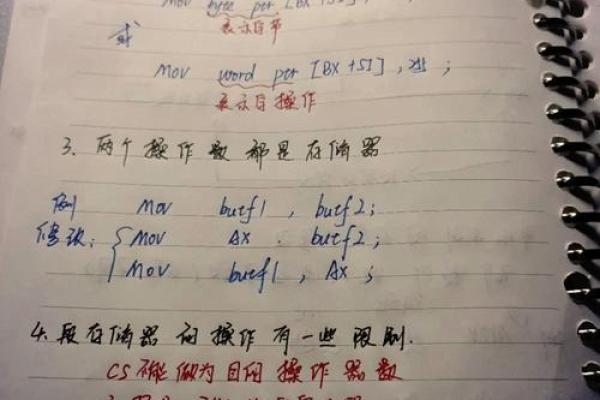 Mov byte ptr [BX+SI]
表示字节
或
Mov word ptr [BX+SI],
表示字操作
3. 两个操作数都是存储器
例 Mov buff1, buff2;
修改: { Mov AX, buff2;
Mov buff1, AX;
4. 段存储器的操作有一些限制.
CS不能做为目的操作器数